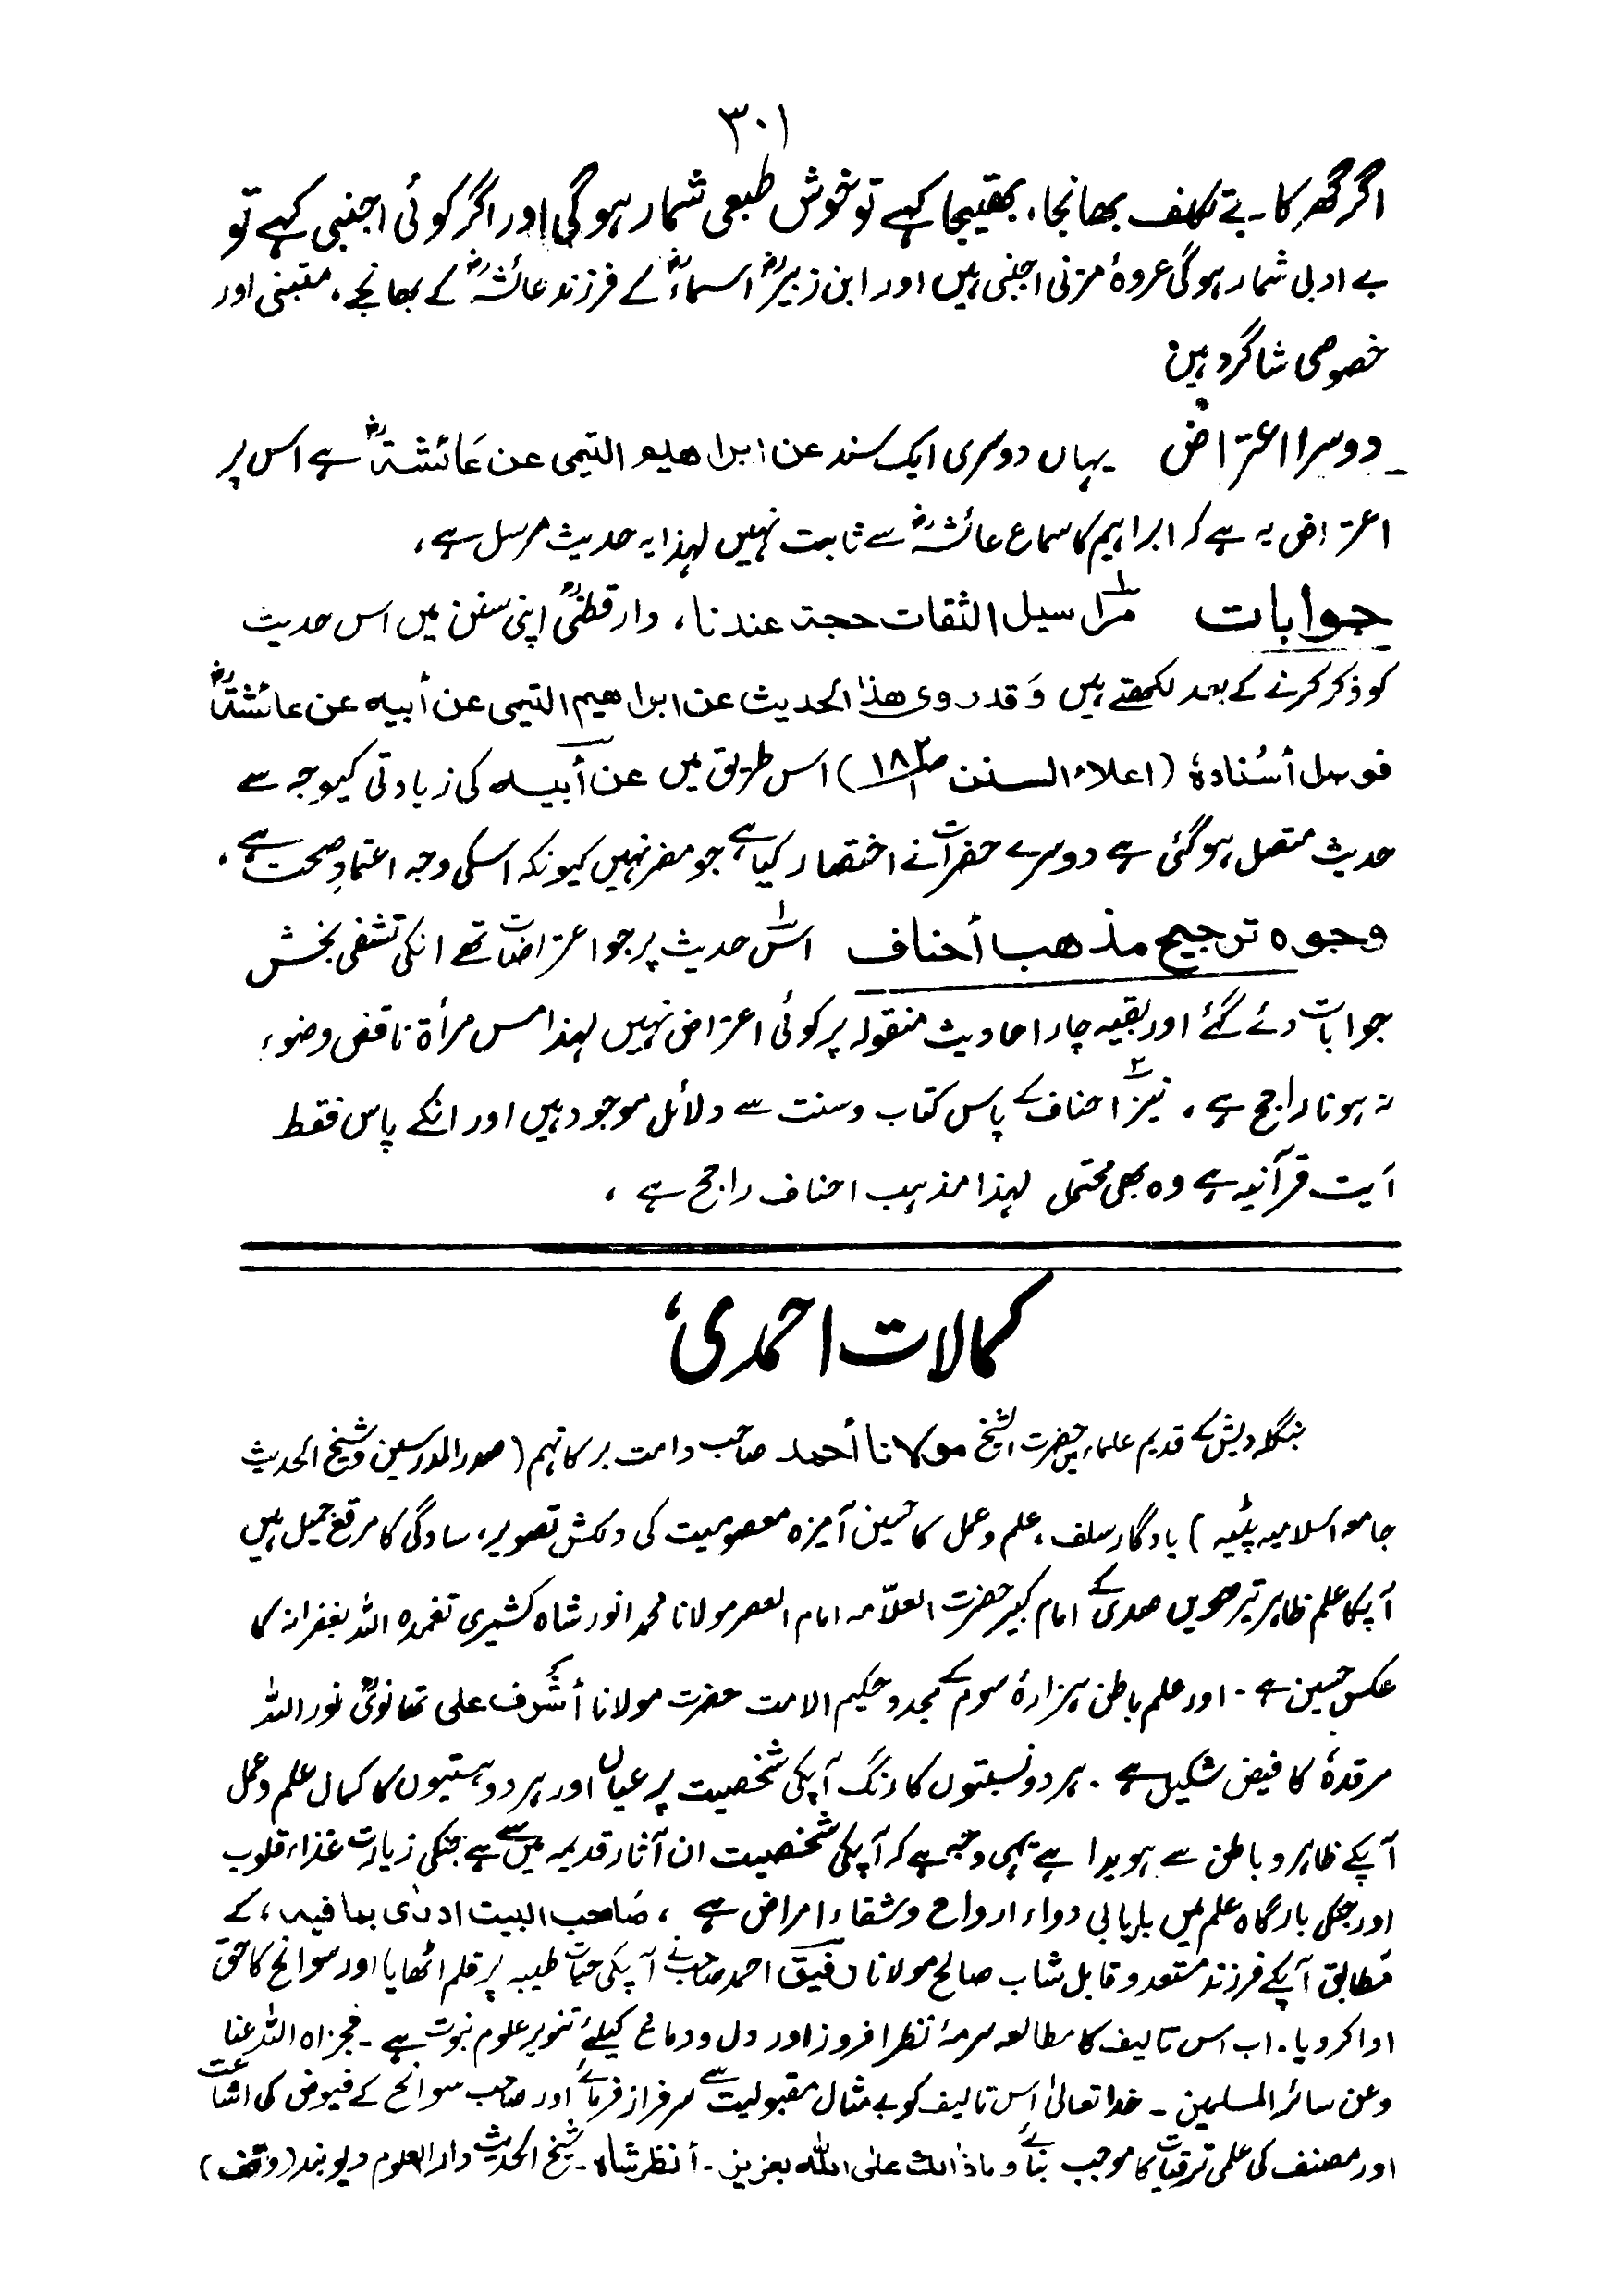 ۳۰۱
اگر گھر کا بے تکلف بھانجا، بھتیجا کہے تو خوش طبعی شمار ہوگی اور اگر کوئی اجنبی کہے تو
بے ادبی شمار ہوگی عروۂ مزنی اجنبی ہیں اور ابن زبیرؓ اسماءؓ کے فرزند عائشہؓ کے بھانجے، متبنی اور
خصوصی شاگرد ہیں
دوسرا اعتراض یہاں دوسری ایک سند عن ابراھیم التیمی عن عَائشۃؓ ہے اس پر
اعتراض یہ ہے کہ ابراہیم کا سماع عائشہؓ سے ثابت نہیں لہذا یہ حدیث مرسل ہے،
جوابات ۱؎ مَراسیل الثقات حجۃ عندنا، دارقطنیؒ اپنی سنن میں اس حدیث
کو ذکر کرنے کے بعد لکھتے ہیں وَقد روی ھذا الحدیث عن ابراھیم التیمی عن أبیہ عن عائشۃؓ
فوصل أسُنادہٗ (اعلاء السنن ص۱۸۲/۱) اس طریق میں عن أبیہ کی زیادتی کیوجہ سے
حدیث متصل ہوگئی ہے دوسرے حضرات نے اختصار کیا ہے جو مضر نہیں کیونکہ اسکی وجہ اعتمادِ صحت ہے،
وجوہ ترجیح مذھب أحناف ۱؎ اس حدیث پر جو اعتراضات تھے انکی تشفی بخش
جوابات دئے گئے اور بقیہ چار احادیث منقولہ پر کوئی اعتراض نہیں لہذا مس مرأۃ ناقض وضوء
نہ ہونا راجح ہے، ۲؎ نیز احناف کے پاس کتاب وسنت سے دلائل موجود ہیں اور انکے پاس فقط
آیت قرآنیہ ہے وہ بھی محتمل لہذا مذہب احناف راجح ہے،
کمالات احمدی،
بنگلہ دیش کے قدیم علماء میں حضرت الشیخ مولانا أحمد صاحب دامت برکاتہم (صدر المدرسین وشیخ الحدیث
جامعہ اسلامیہ پٹیہ) یادگار سلف، علم وعمل کا حسین آمیزہ معصومیت کی دلکش تصویر، سادگی کا مرقع جمیل ہیں
آپکا علم ظاہر تیرھویں صدی کے امام کبیر حضرت العلاّمہ امام العصر مولانا محمد انور شاہ کشمیری تغمدہ اللہ بغفرانہ کا
عکس حسین ہے۔ اور علم باطن ہزارۂ سوم کے مجدد حکیم الامت حضرت مولانا أشرف علی تھانویؒ نور اللہ
مرقدہٗ کا فیض شکیل ہے۔ ہر دو نسبتوں کا رنگ آپکی شخصیت پر عیاں اور ہر دو ہستیوں کا کمال علم وعمل
آپکے ظاہر و باطن سے ہویدا ہے یہی وجہ ہے کہ آپکی شخصیت ان آثار قدیمہ میں سے ہے جنکی زیارت غذاء قلوب
اور جنکی بارگاہ علم میں باریابی دواء ارواح وشفاء امراض ہے، صَاحب البیت ادریٰ بما فیہ، کے
مُطابق آپکے فرزند مستعد و قابل شاب صالح مولانا رفیق احمد صاحب نے آپکی حیات طیبہ پر قلم اٹھایا اور سوانح کا حق
ادا کر دیا۔ اب اس تالیف کا مطالعہ سرمۂ نظر افروز اور دل و دماغ کیلئے تنویر علوم نبوت ہے۔ فجزاہ اللہ عنا
وعن سائر المسلمین۔ خدا تعالیٰ اس تالیف کو بے مثال مقبولیت سے سرفراز فرمائے اور صاحب سوانح کے فیوض کی اشاعت
اور مصنف کی علمی ترقیات کا موجب بنائے وماذالك علی اللہ بعزیز۔ أنظر شاہ۔ شیخ الحدیث دارالعلوم دیوبند (وقف)